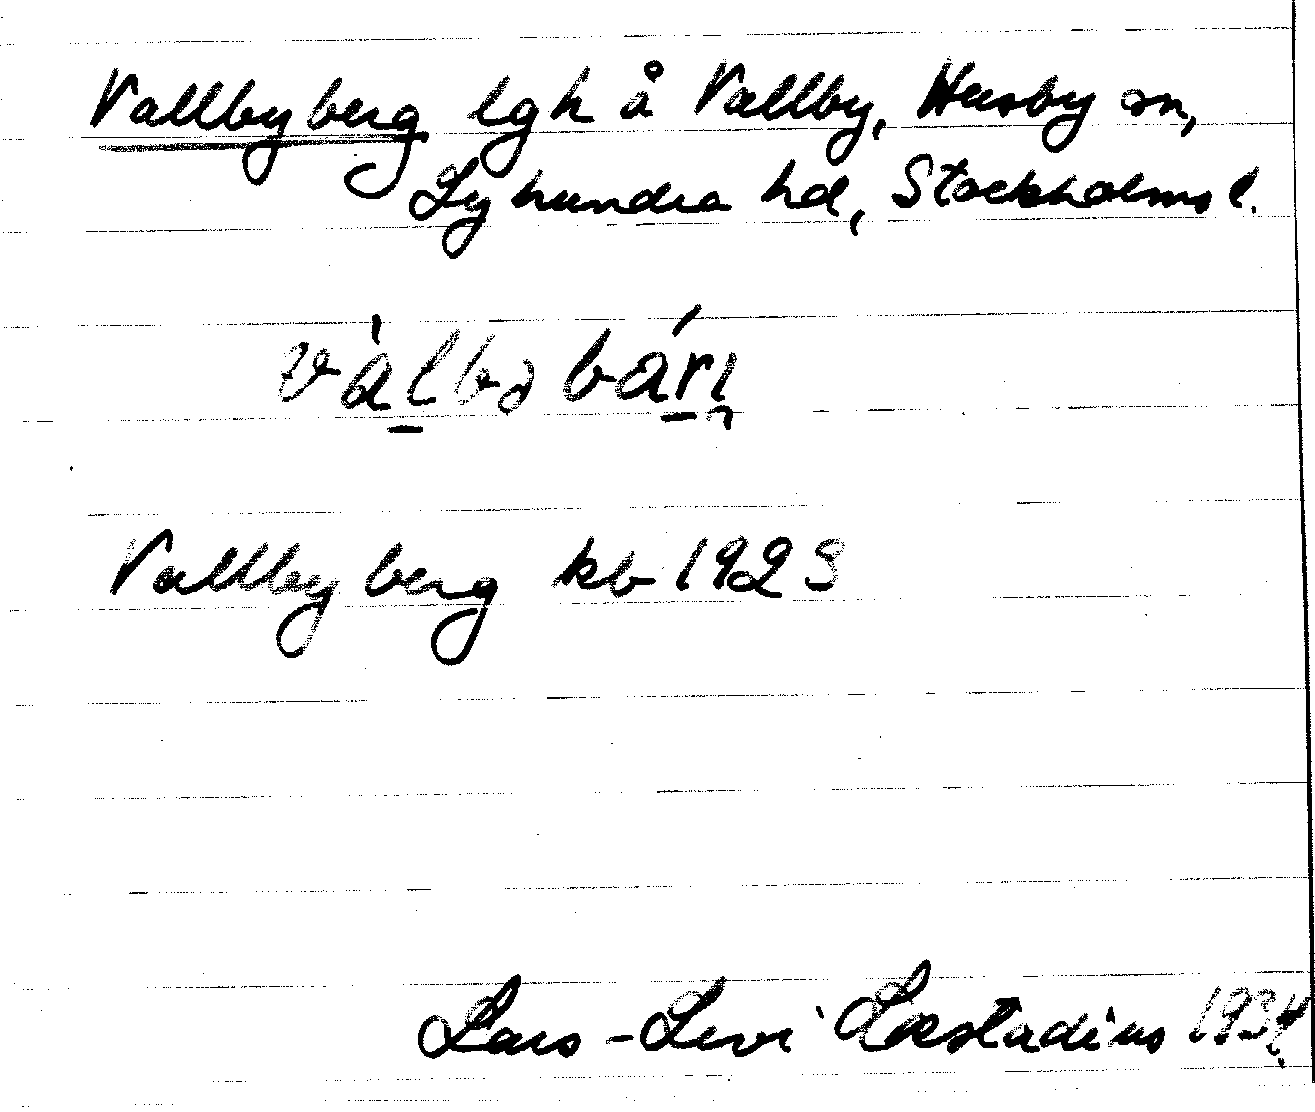 Vallbyberg lgh å Vallby, Husby sn,
Lyhundra hd, Stockholms l.
Vallbyberg kb 1923
Lars-Levi Læstadius 1934.